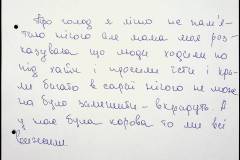 Про голод я лічно не пам'я-
таю нічого але мама моя роз-
казувала що люди ходили по
під хати і просили їсти і кра-
ли багато в сараї нічого не можн
на було залишити - вкрадуть. А
у нас була корова то ми всі
вижили.